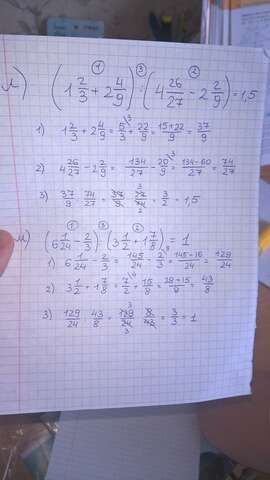 л) (1 2/3 + 2 4/9) : (4 26/27 - 2 2/9) = 1,5
1) 1 2/3 + 2 4/9 = 5/3 + 22/9 = 15+22/9 = 37/9
2) 4 26/27 - 2 2/9 = 134/27 - 20/9 = 134-60/27 = 74/27
3) 37/9 : 74/27 = 37/9 · 27/74 = 3/2 = 1,5
м) (6 1/24 - 2/3) : (3 1/2 + 1 7/8) = 1
1) 6 1/24 - 2/3 = 145/24 - 2/3 = 145-16/24 = 129/24
2) 3 1/2 + 1 7/8 = 7/2 + 15/8 = 28+15/8 = 43/8
3) 129/24 : 43/8 = 129/24 · 8/43 = 3/3 = 1